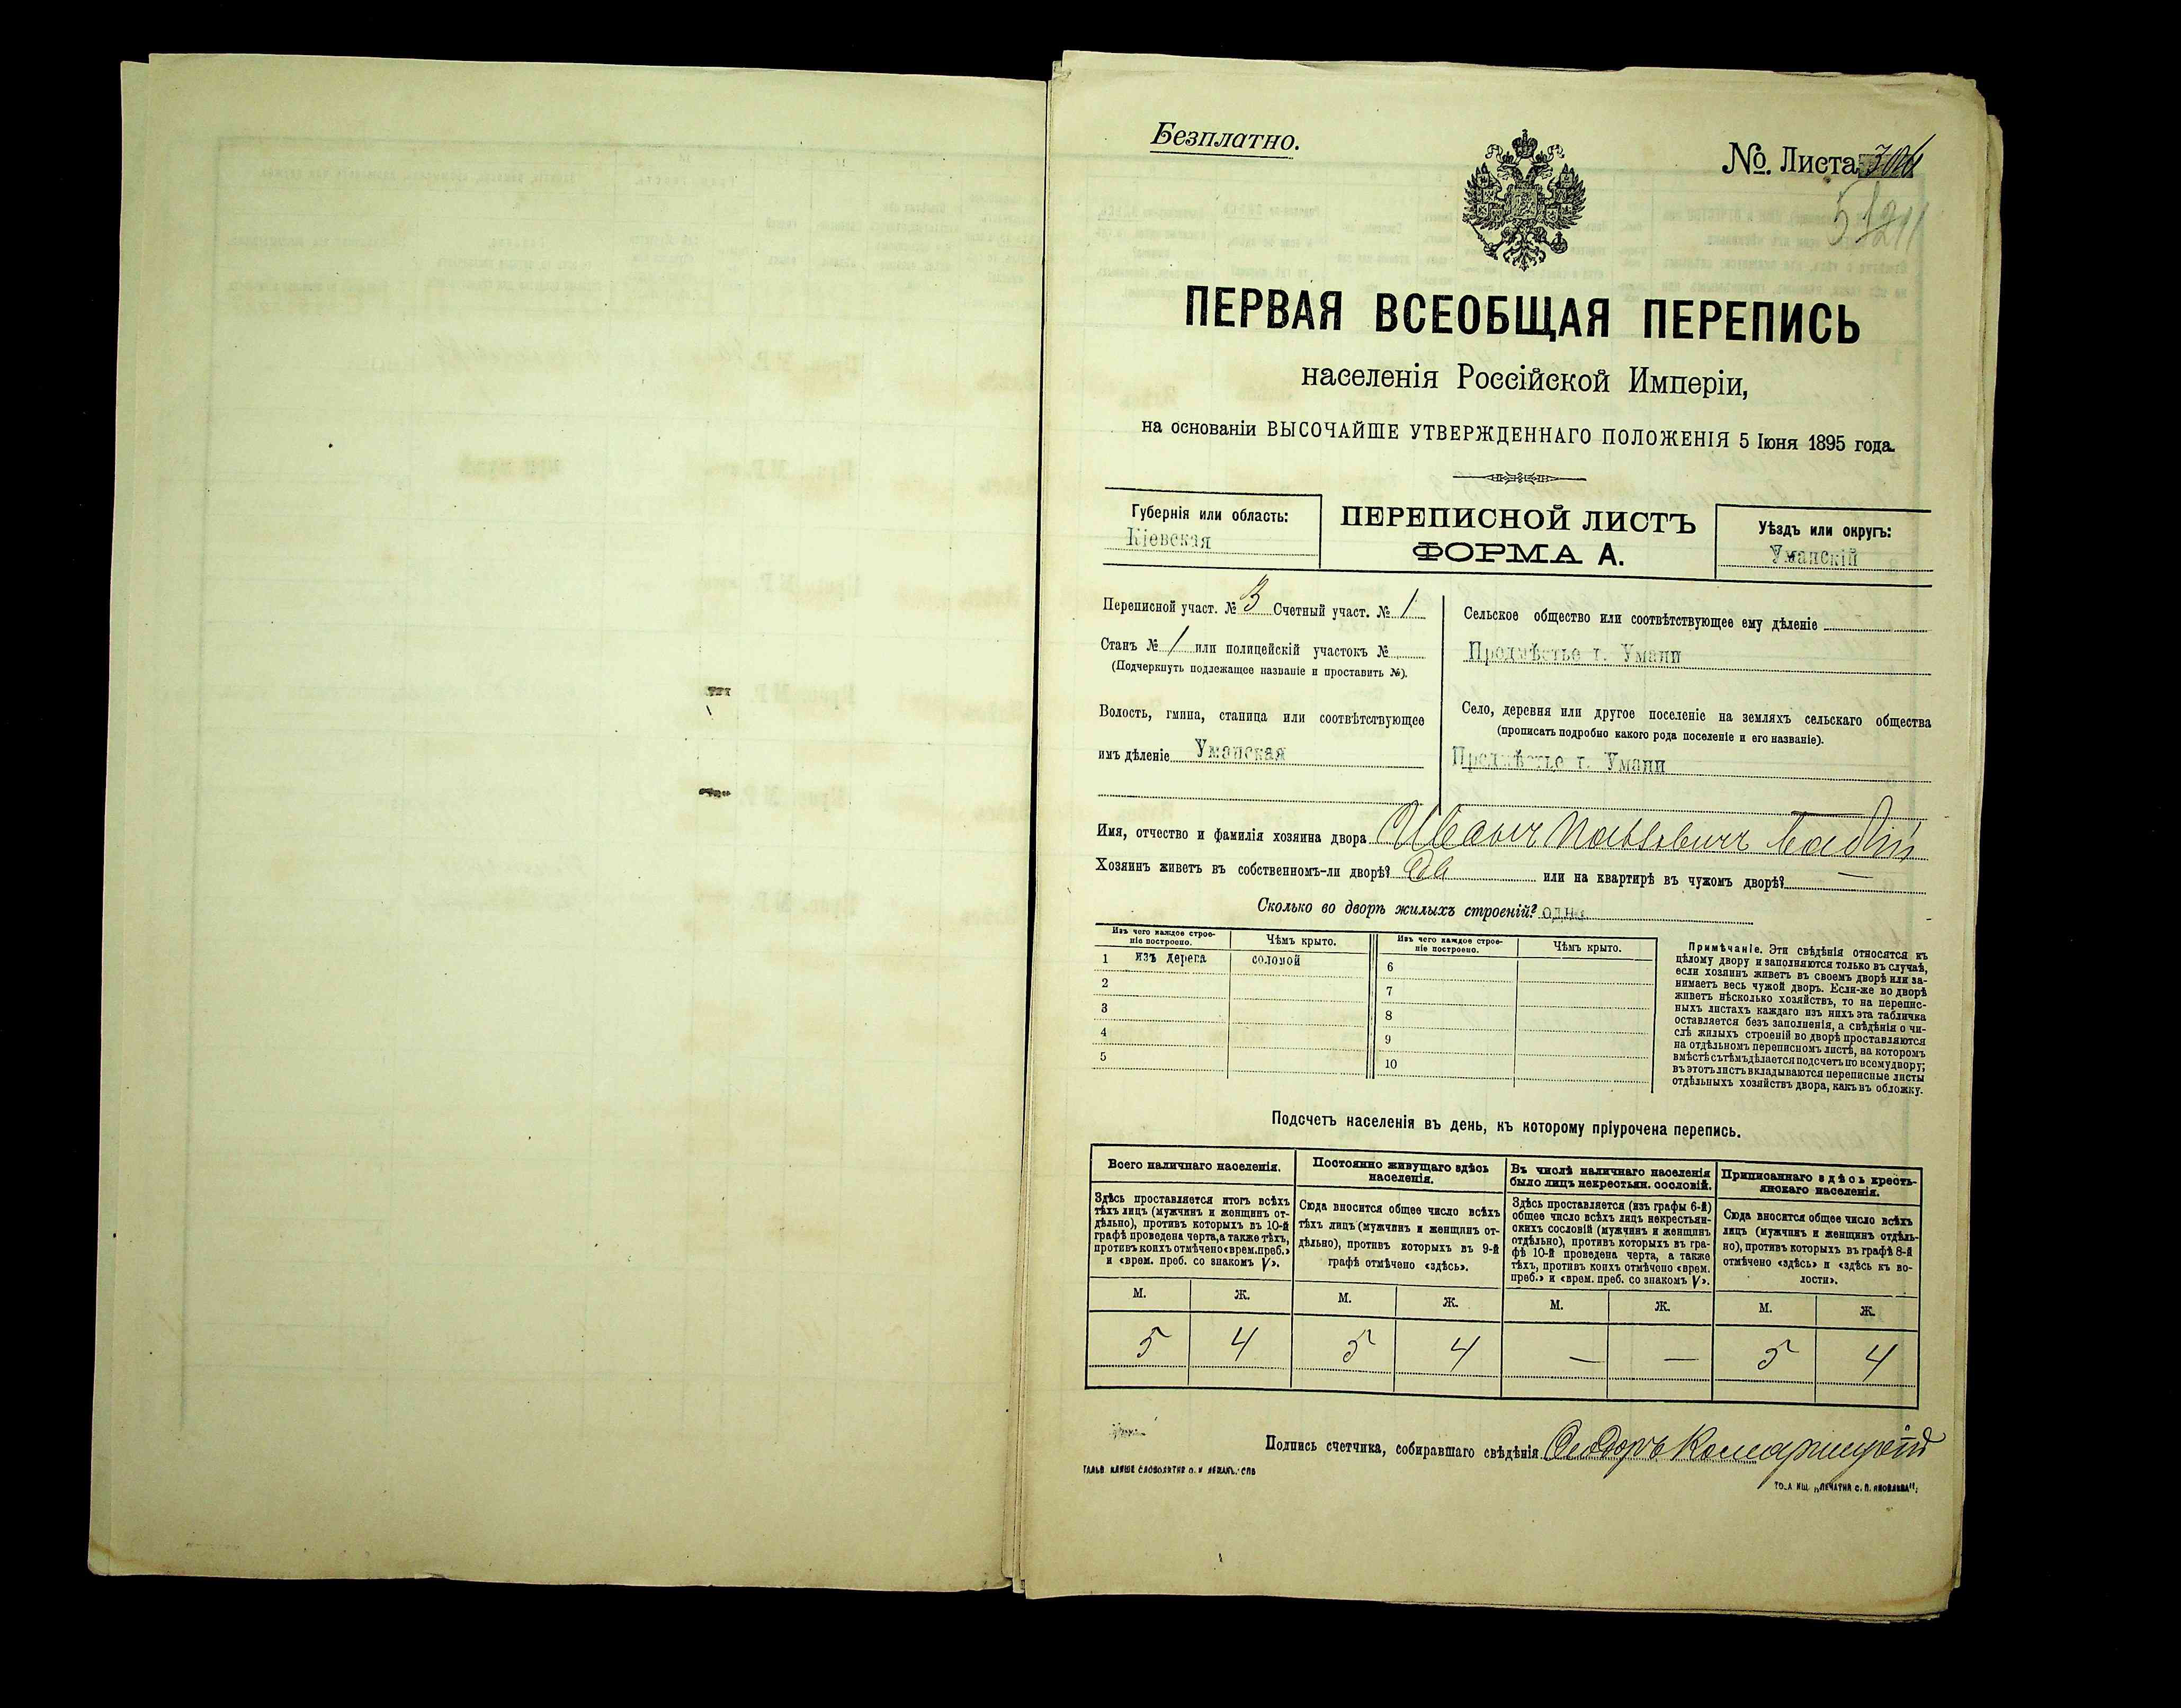 Безплатно.
№. Листа
ПЕРВАЯ ВСЕОБЩАЯ ПЕРЕПИСЬ
населенія Россійской Имперіи,
на основаніи ВЫСОЧАЙШЕ УТВЕРЖДЕННАГО ПОЛОЖЕНІЯ 5 Іюня 1895 года.
Губернія или область:
Кіевская
ПЕРЕПИСНОЙ ЛИСТЪ
ФОРМА А.
Уѣздъ или округъ:
Уманскій
Переписной участ. № 3 Счетный участ. № 1
Станъ № 1 или полицейскій участокъ №
(Подчеркнуть подлежащее названіе и проставить №).
Волость, гмина, станица или соотвѣтствующее
имъ дѣленіе Уманская
Сельское общество или соотвѣтствующее ему дѣленіе
Предмѣстье г. Умани
Село, деревня или другое поселеніе на земляхъ сельскаго общества
(прописать подробно какого рода поселеніе и его названіе).
Предмѣстье г. Умани
Имя, отчество и фамилія хозяина двора Иванъ
Хозяинъ живетъ въ собственномъ-ли дворѣ? Да или на квартирѣ въ чужомъ дворѣ? —
Сколько во дворѣ жилыхъ строеній? одно
Изъ чего каждое строе-
ніе построено.
Чѣмъ крыто.
Изъ чего каждое строе-
ніе построено.
Чѣмъ крыто.
1 изъ дерева соломой
2
3
4
5
6
7
8
9
10
Примѣчаніе. Эти свѣдѣнія относятся къ
цѣлому двору и заполняются только въ случаѣ,
если хозяинъ живетъ въ своемъ дворѣ или за-
нимаетъ весь чужой дворъ. Если-же во дворѣ
живетъ нѣсколько хозяйствъ, то на перепис-
ныхъ листахъ каждаго изъ нихъ эта табличка
оставляется безъ заполненія, а свѣдѣнія о чи-
слѣ жилыхъ строеній во дворѣ проставляются
на отдѣльномъ переписномъ листѣ, на которомъ
вмѣстѣ съ тѣмъ дѣлается подсчетъ по всему двору;
въ этотъ листъ вкладываются переписные листы
отдѣльныхъ хозяйствъ двора, какъ въ обложку.
Подсчетъ населенія въ день, къ которому пріурочена перепись.
Всего наличнаго населенія.
Здѣсь проставляется итогъ всѣхъ
тѣхъ лицъ (мужчинъ и женщинъ от-
дѣльно), противъ которыхъ въ 10-й
графѣ проведена черта, а также тѣхъ,
противъ коихъ отмѣчено «врем. преб.»
и «врем. преб. со знакомъ V».
Постоянно живущаго здѣсь
населенія.
Сюда вносится общее число всѣхъ
тѣхъ лицъ (мужчинъ и женщинъ от-
дѣльно), противъ которыхъ въ 9-й
графѣ отмѣчено «здѣсь».
Въ числѣ наличнаго населенія
было лицъ некрестьян. сословій.
Здѣсь проставляется (изъ графы 6-й)
общее число всѣхъ лицъ некрестьян-
скихъ сословій (мужчинъ и женщинъ
отдѣльно), противъ которыхъ въ гра-
фѣ 10-й проведена черта, а также
тѣхъ, противъ коихъ отмѣчено «врем.
преб.» и «врем. преб. со знакомъ V».
Приписаннаго здѣсь кресть-
янскаго населенія.
Сюда вносится общее число всѣхъ
лицъ (мужчинъ и женщинъ отдѣль-
но), противъ которыхъ въ графѣ 8-й
отмѣчено «здѣсь» и «здѣсь къ во-
лости».
М. Ж. М. Ж. М. Ж. М. Ж.
5 4 5 4 — — 5 4
Подпись счетчика, собиравшаго свѣдѣнія Ѳеодоръ Комарницкій